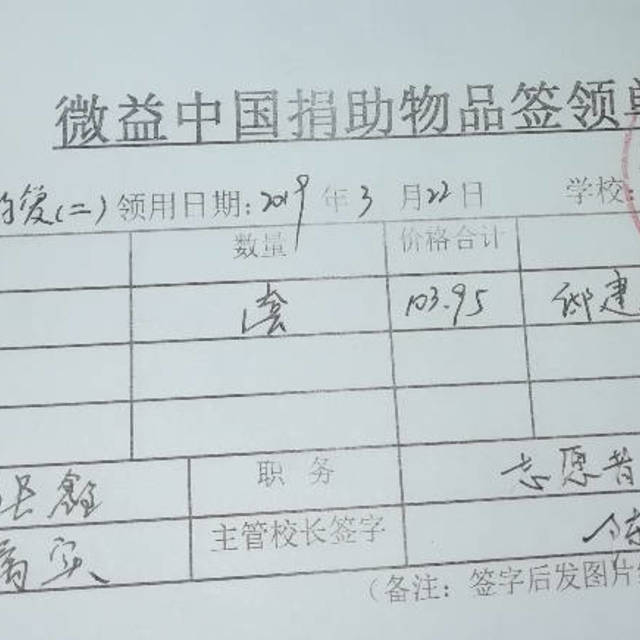 微益中国捐助物品签领单
爱(二) 领用日期:2019年3月22日 学校
数量 价格合计
套 103.95 邱建
张鑫 职务 志愿者
主管校长签字
(备注:签字后发图片